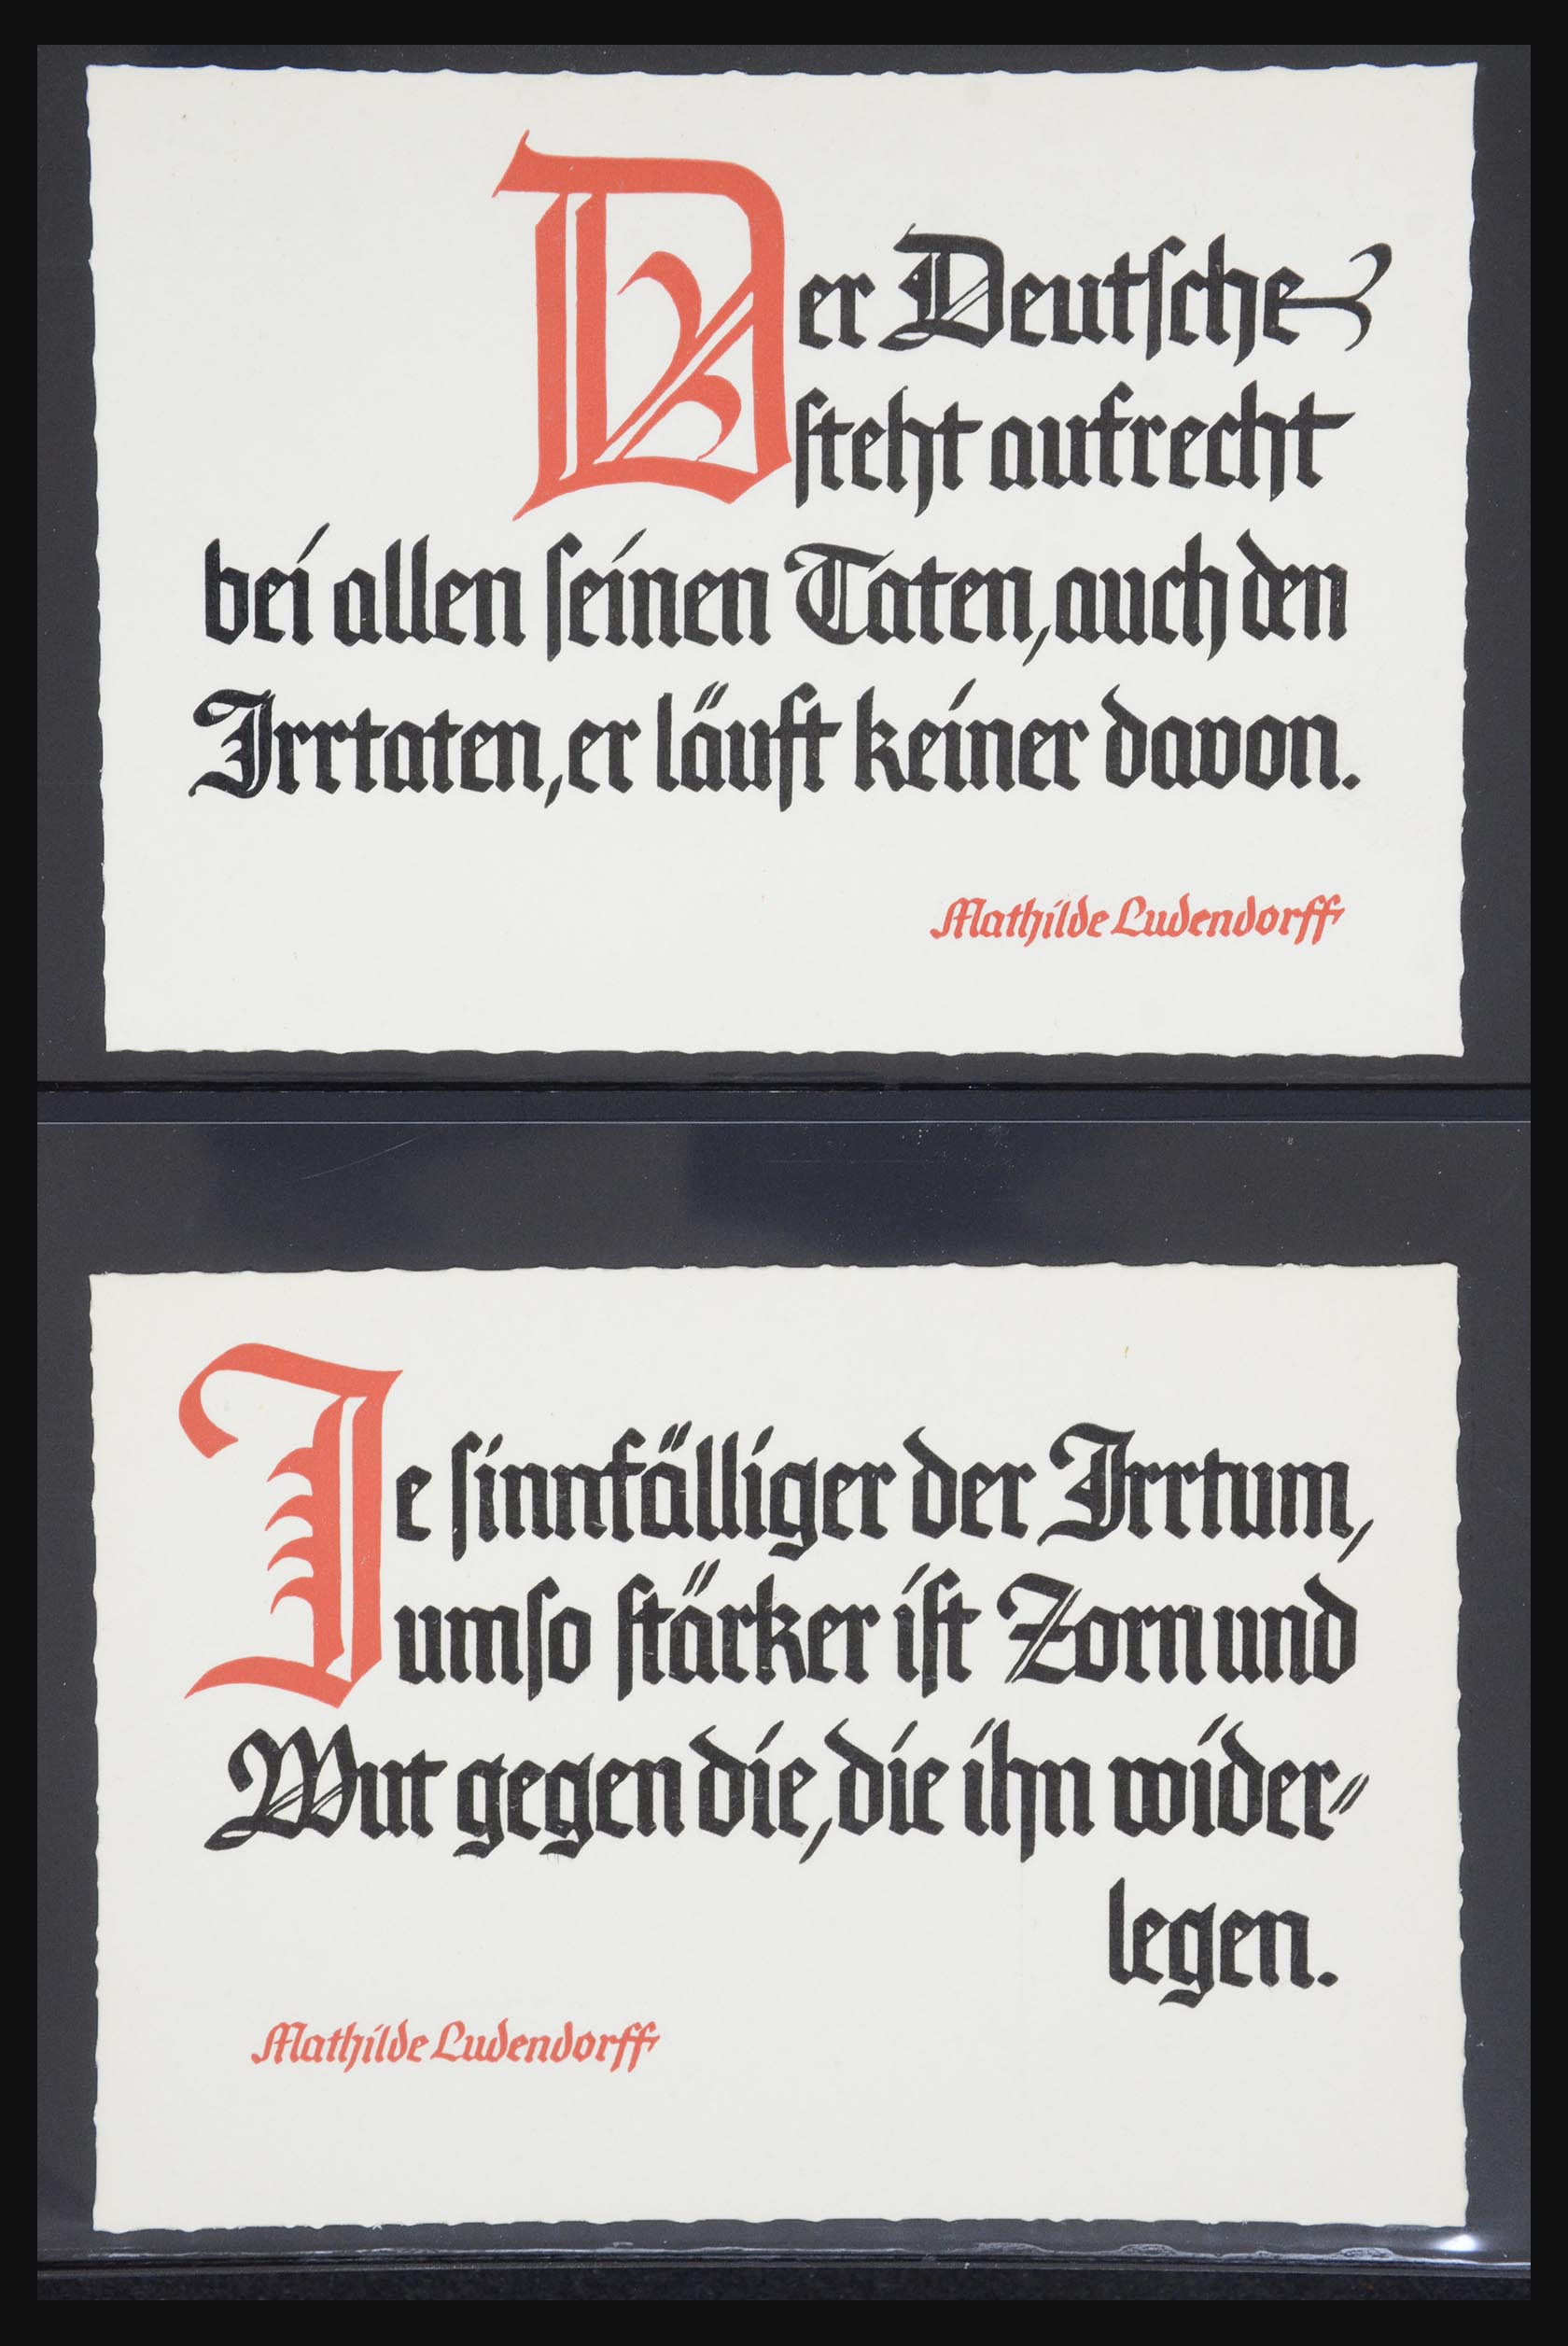 Der Deutsche
steht aufrecht
bei allen seinen Taten, auch den
Irrtaten, er läuft keiner davon.
Mathilde Ludendorff
Je sinnfälliger der Irrtum,
umso stärker ist Zorn und
Wut gegen die, die ihn wider-
legen.
Mathilde Ludendorff